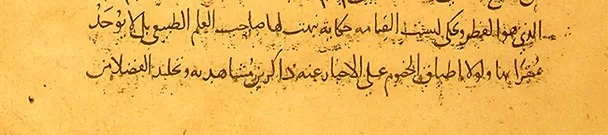 الذي هو الفطر ويحكى لبست القيامه حكاية بهت لها صاحب العلم الطبيعي بل لا يوجد
مقرا بها ولولا اطباق الخصوم على الاخبار عنه ذاكرين مشاهدته وتخليد الفضلا من